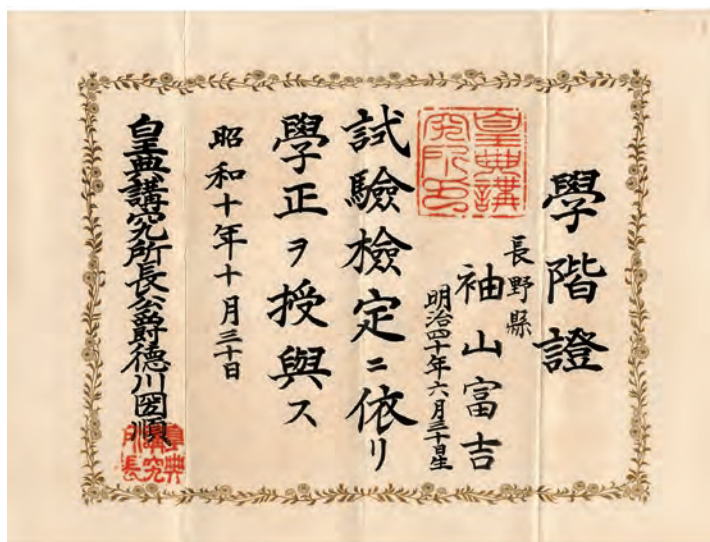 學階證
皇典講究所印
長野縣
袖山富吉
明治四十年六月三十日生
試驗檢定ニ依リ
學正ヲ授與ス
昭和十年十月三十日
皇典講究所長公爵德川圀順
皇典講究所長